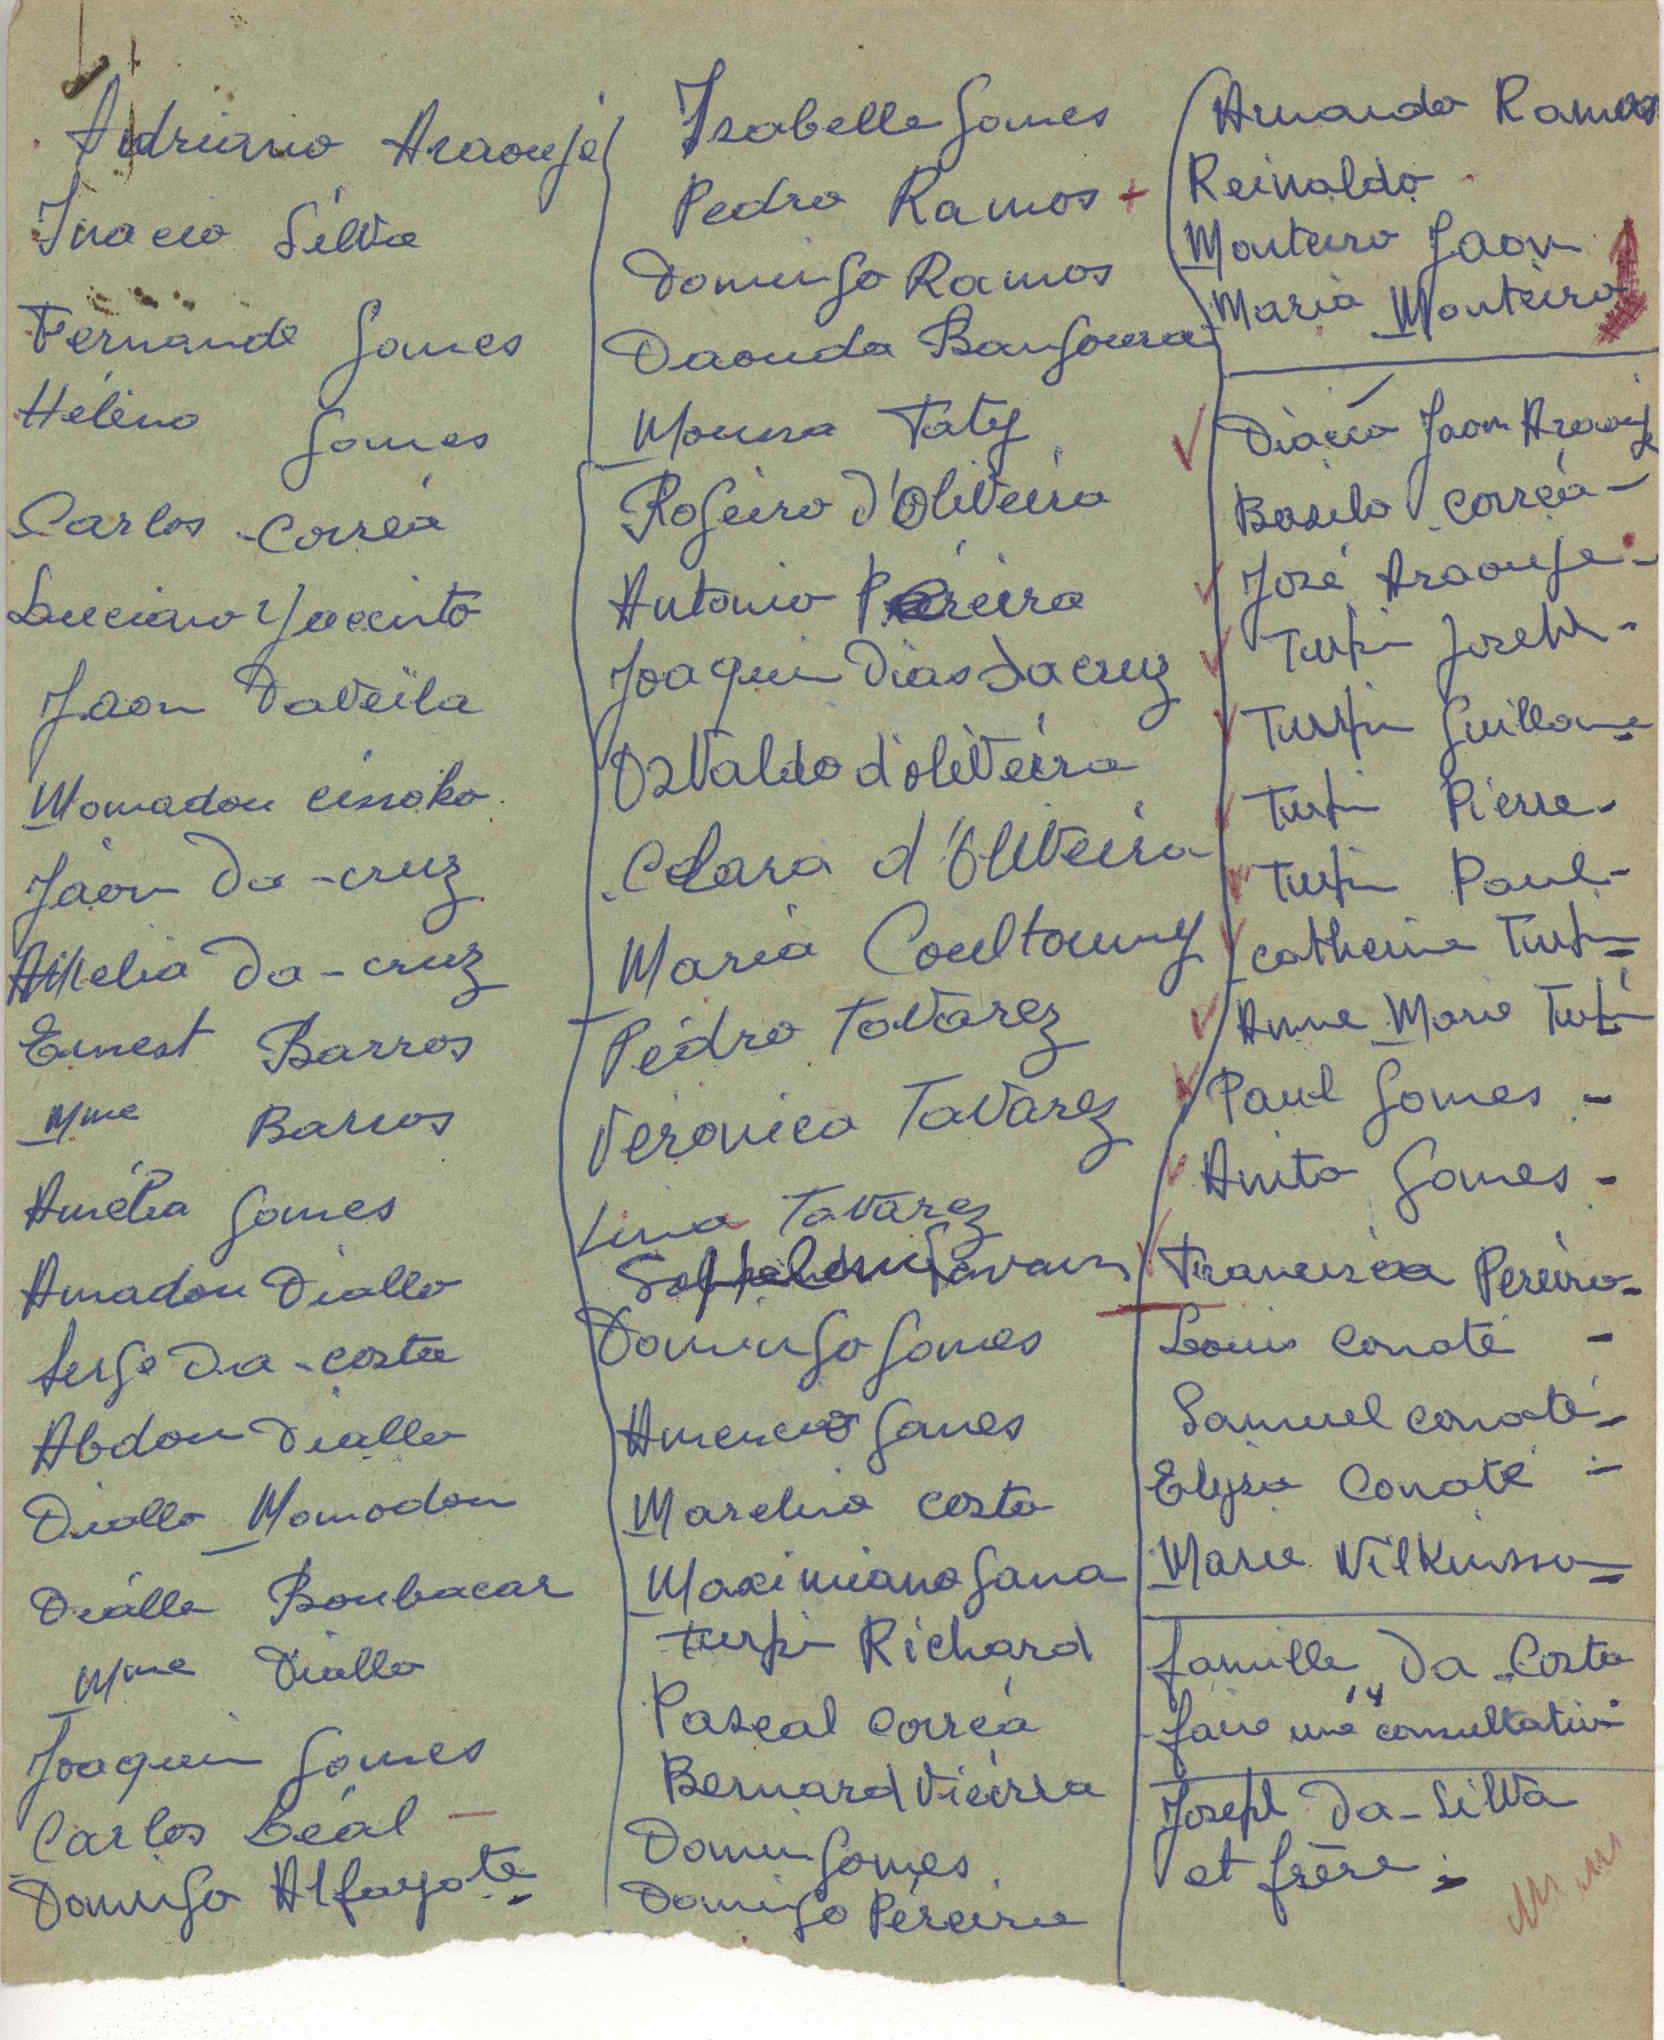 Adriano Araouje
Inacio Silva
Fernande Gomes
Hélèno Gomes
Carlos Corréa
Luciano Yaccinto
Jaon Daveïla
Mamadou Cissoko
Jàon Da-cruz
Amelia Da-cruz
Ernest Barros
Mme Barros
Amélia Gomes
Amadou Diallo
Serge Da-costa
Abdou Diallo
Diallo Mamadou
Diallo Boubacar
Mme Diallo
Joaquin Gomes
Carlos Léal -
Domingo Alfayate
Isabelle Gomes
Pedro Ramos +
Domingo Ramos
Daouda Bangoura
Moussa Taty
Rogeiro d'Oliveira
Antonio Pereira
Joaquin Dias Da cruz
Osvaldo d'oliveira
Clara d'Oliveira
Maria Coultoumy
Pédro Tavarez
Véronica Tavarez
Lina Tavarez
Domingo Gomes
Gomes
Marelino Costa
Maximiano Gama
Turpin Richard
Pascal Corréa
Bernard Vieirra
Domin Gomes
Domingo Péreira
Arnando Ramos
Reinaldo
Monteiro Jaon
Maria Monteiro
Jaon Araouje
Basilo Corréa -
José Araouje -
Turpin Joseph -
Turpin Guillome
Turpin Pierre -
Turpin Paul -
Catherine Turpin
Anne Marie Turpin
Paul Gomes -
Anita Gomes -
Péreira -
Louis Conaté -
Samuel Conaté -
Elysa Conaté -
Marie Vilkinsson
famille Da-Costa
faire une consultation
Joseph Da-Silva
et frère -